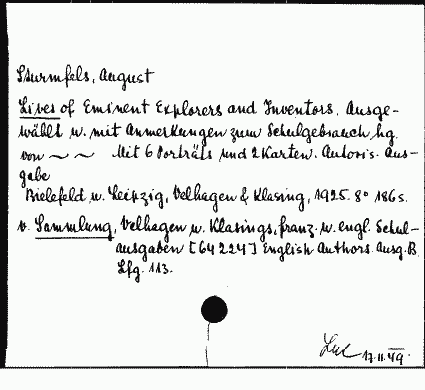 Sturmfels, August
Lives of Eminent Explorers and Inventors. Ausge-
wählt u. mit Anmerkungen zum Schulgebrauch hg.
von ~ ~ Mit 6 Porträts und 2 Karten. Autoris. Aus-
gabe
Bielefeld u. Leipzig, Velhagen & Klasing, 1925. 8° 186 s.
v. Sammlung, Velhagen u. Klasings, franz. u. engl. Schul-
ausgaben [64224] English Authors. Ausg. B.
Lfg. 113.
17.II.49.